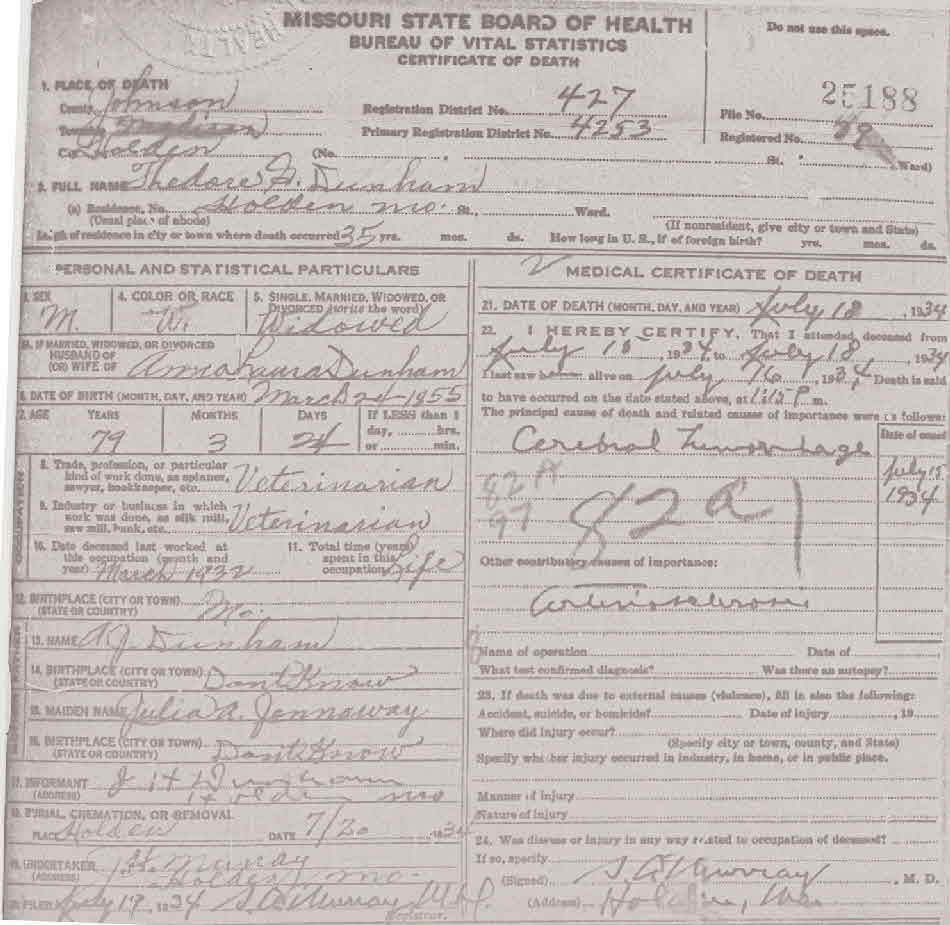 MISSOURI STATE BOARD OF HEALTH
BUREAU OF VITAL STATISTICS
CERTIFICATE OF DEATH
Do not use this space.
HEALTH
1. PLACE OF DEATH
County Johnson
Registration District No. 427
25188
File No.
Township Madison
Primary Registration District No. 4253
Registered No. 59
City Holden (No. St. Ward)
2. FULL NAME Thedore F. Dunham
(a) Residence, No. Holden Mo. St., Ward.
(Usual place of abode) (If nonresident, give city or town and State)
Length of residence in city or town where death occurred 35 yrs. mos. ds. How long in U. S., if of foreign birth? yrs. mos. ds.
PERSONAL AND STATISTICAL PARTICULARS
3. SEX
M.
4. COLOR OR RACE
W.
5. SINGLE, MARRIED, WIDOWED, OR
DIVORCED (write the word)
Widowed
5A. IF MARRIED, WIDOWED, OR DIVORCED
HUSBAND OF
(OR) WIFE OF Anna Laura Dunham
6. DATE OF BIRTH (MONTH, DAY, AND YEAR) March 24-1955
7. AGE YEARS MONTHS DAYS If LESS than 1
day, hrs.
79 3 24 or min.
OCCUPATION
8. Trade, profession, or particular
kind of work done, as spinner,
sawyer, bookkeeper, etc. Veterinarian
9. Industry or business in which
work was done, as silk mill,
saw mill, bank, etc. Veterinarian
10. Date deceased last worked at
this occupation (month and
year) March 1932
11. Total time (years)
spent in this
occupation Life
12. BIRTHPLACE (CITY OR TOWN)
(STATE OR COUNTRY) Mo.
FATHER
13. NAME A.J. Dunham
14. BIRTHPLACE (CITY OR TOWN)
(STATE OR COUNTRY) Dont Know
15. MAIDEN NAME Julia A. Jennaway
16. BIRTHPLACE (CITY OR TOWN)
(STATE OR COUNTRY) Dont Know
17. INFORMANT J H Dunham
(ADDRESS) Holden Mo
18. BURIAL, CREMATION, OR REMOVAL
PLACE Holden DATE 7/20 1934
19. UNDERTAKER Murray
(ADDRESS) Holden, Mo.
20. FILED July 19, 1934 S.A. Murray M.D.
Registrar.
MEDICAL CERTIFICATE OF DEATH
21. DATE OF DEATH (MONTH, DAY, AND YEAR) July 18, 1934
22. I HEREBY CERTIFY, That I attended deceased from
July 15, 1934, to July 18, 1934
I last saw alive on July 1934, Death is said
to have occurred on the date stated above, at m.
The principal cause of death and related causes of importance were as follows:
Date of onset
Cerebral Hemorrhage
July 15
1934
82A
97
82a
Other contributory causes of importance:
Arteriosclerosis
Name of operation Date of
What test confirmed diagnosis? Was there an autopsy?
23. If death was due to external causes (violence), fill in also the following:
Accident, suicide, or homicide? Date of injury , 19
Where did injury occur?
(Specify city or town, county, and State)
Specify whether injury occurred in industry, in home, or in public place.
Manner of injury
Nature of injury
24. Was disease or injury in any way related to occupation of deceased?
If so, specify
(Signed) S. A. Murray, M. D.
(Address) Holden, Mo.